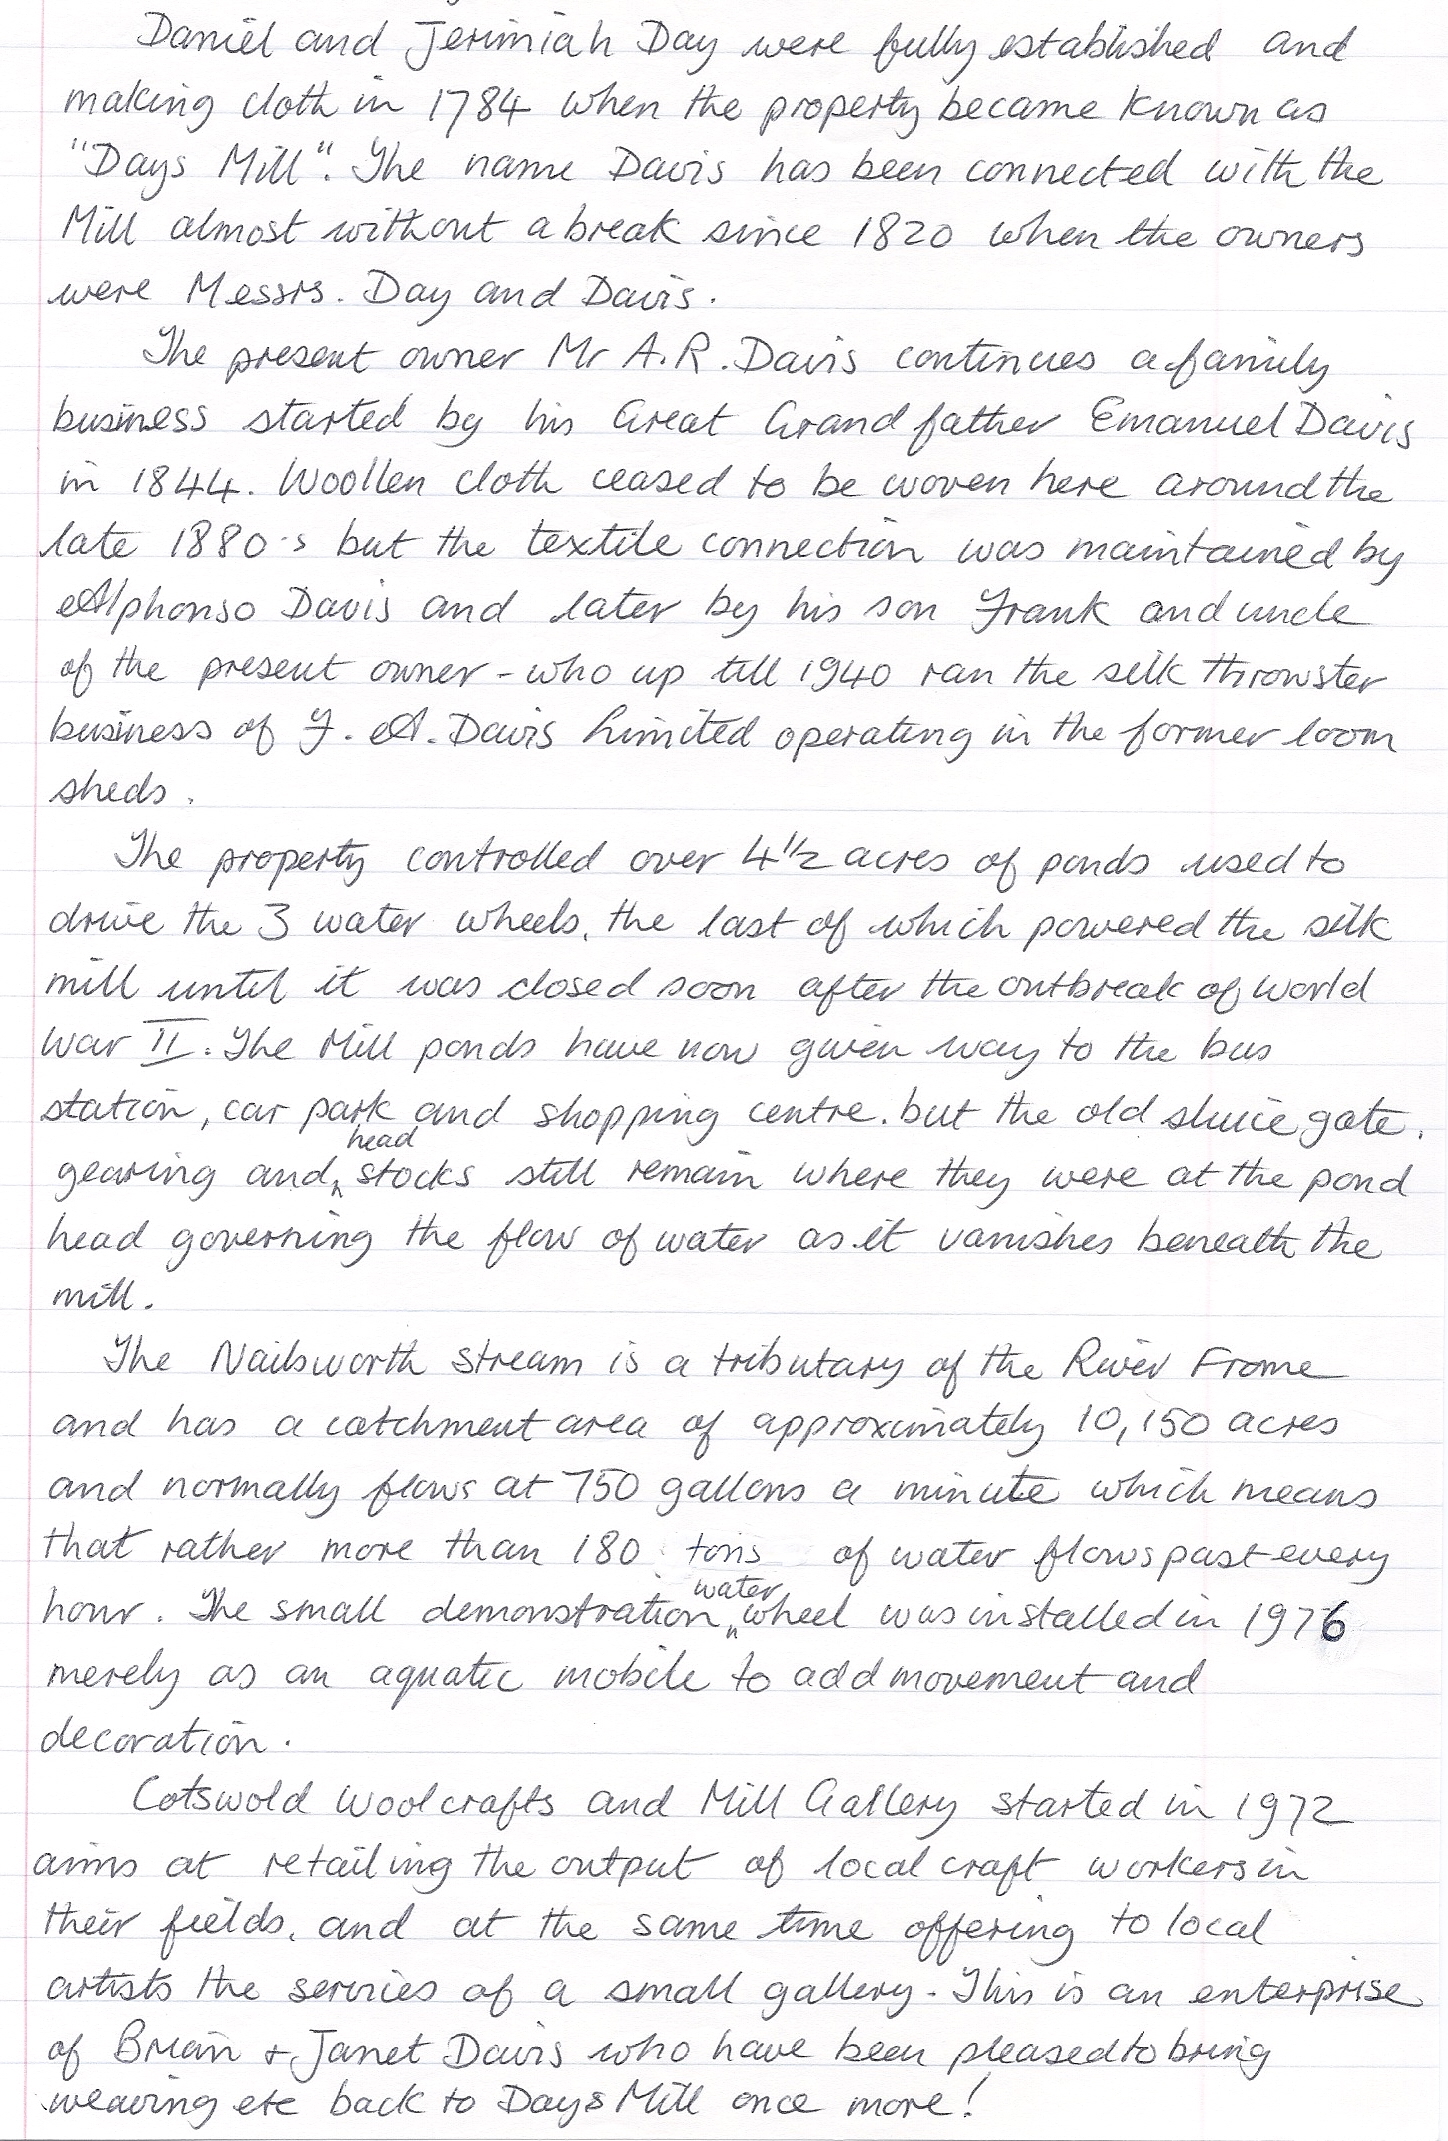 Daniel and Jerimiah Day were fully established and
making cloth in 1784 when the property became known as
"Days Mill". The name Davis has been connected with the
Mill almost without a break since 1820 when the owners
were Messrs. Day and Davis.
The present owner Mr A.R. Davis continues a family
business started by his Great Grandfather Emanuel Davis
in 1844. Woollen cloth ceased to be woven here around the
late 1880's but the textile connection was maintained by
Alphonso Davis and later by his son Frank and uncle
of the present owner - who up till 1940 ran the silk throwster
business of F. A. Davis Limited operating in the former loom
sheds.
The property controlled over 4 1/2 acres of ponds used to
drive the 3 water wheels, the last of which powered the silk
mill until it was closed soon after the outbreak of World
War II. The Mill ponds have now given way to the bus
station, car park and shopping centre. but the old sluice gate,
gearing and head stocks still remain where they were at the pond
head governing the flow of water as it vanishes beneath the
mill.
The Nailsworth stream is a tributary of the River Frome
and has a catchment area of approximately 10,150 acres
and normally flows at 750 gallons a minute which means
that rather more than 180 tons of water flows past every
hour. The small demonstration water wheel was installed in 1976
merely as an aquatic mobile to add movement and
decoration.
Cotswold Woolcrafts and Mill Gallery started in 1972
aims at retailing the output of local craft workers in
their fields, and at the same time offering to local
artists the services of a small gallery. This is an enterprise
of Brian + Janet Davis who have been pleased to bring
weaving etc back to Days Mill once more!